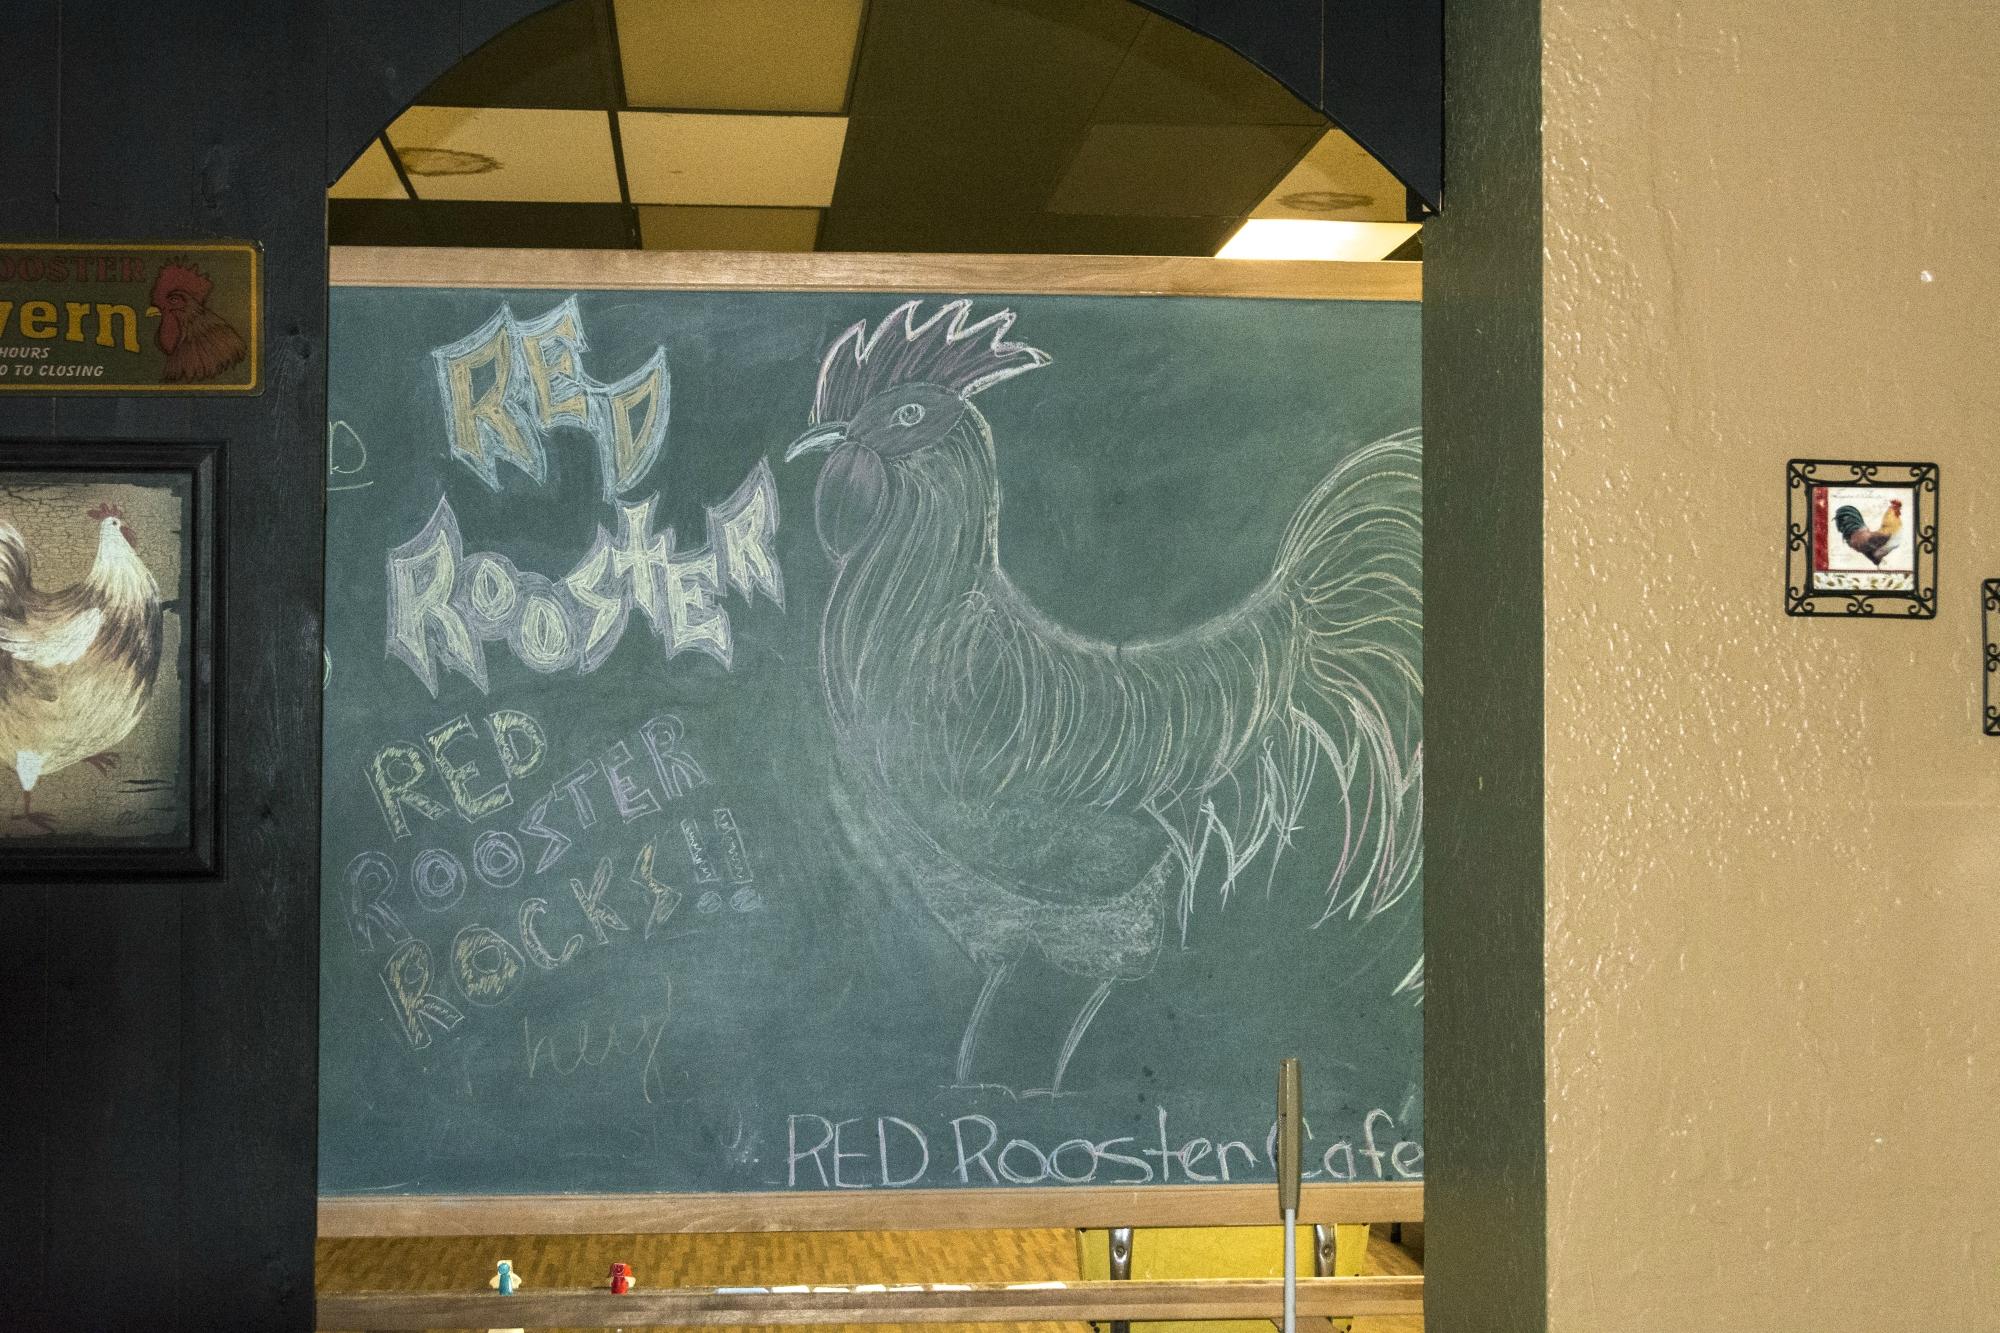 OOSTER
vern
HOURS
O TO CLOSING
RED
ROOSTER
RED
ROOSTER
ROCKS!!
hey
RED ROOSTER Cafe